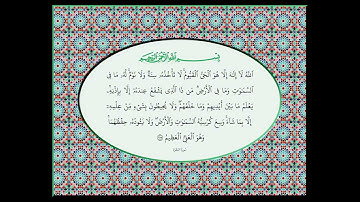 بِسْمِ اللَّهِ الرَّحْمَٰنِ الرَّحِيمِ
اللَّهُ لَا إِلَٰهَ إِلَّا هُوَ الْحَيُّ الْقَيُّومُ لَا تَأْخُذُهُ سِنَةٌ وَلَا نَوْمٌ لَهُ مَا فِي
السَّمَٰوَٰتِ وَمَا فِي الْأَرْضِ مَنْ ذَا الَّذِي يَشْفَعُ عِنْدَهُ إِلَّا بِإِذْنِهِ
يَعْلَمُ مَا بَيْنَ أَيْدِيهِمْ وَمَا خَلْفَهُمْ وَلَا يُحِيطُونَ بِشَيْءٍ مِنْ عِلْمِهِ
إِلَّا بِمَا شَاءَ وَسِعَ كُرْسِيُّهُ السَّمَٰوَٰتِ وَالْأَرْضَ وَلَا يَئُودُهُ حِفْظُهُمَا
وَهُوَ الْعَلِيُّ الْعَظِيمُ